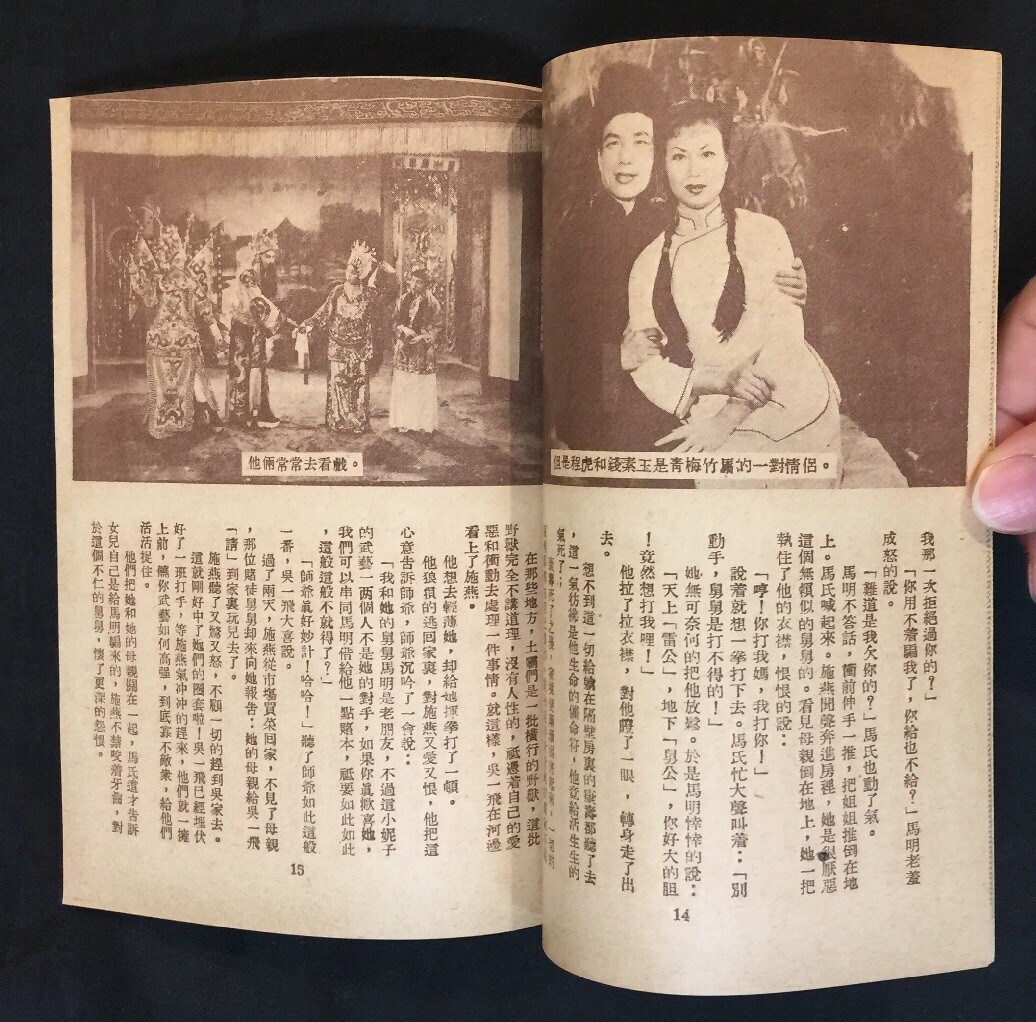 但是程虎和錢素玉是青梅竹馬的一對情侶。
我那一次拒絕過你的？」
「你用不着騙我了，你給也不給？」馬明老羞
成怒的說。
「難道是我欠你的？」馬氏也動了氣。
馬明不答話，衝前伸手一推，把姐姐推倒在地
上。馬氏喊起來。施燕聞聲奔進房裡，她是很厭惡
這個無賴似的舅舅的。看見母親倒在地上，她一把
執住了他的衣襟，恨恨的說：
「哼！你打我媽，我打你！」
說着就想一拳打下去。馬氏忙大聲叫着：「別
動手，舅舅是打不得的！」
她無可奈何的把他放鬆。於是馬明悻悻的說：
「天上「雷公」，地下「舅公」，你好大的胆
！竟然想打我哩！」
他拉了拉衣襟，對他瞪了一眼，轉身走了出
去。
想不到這一切給躺在隔壁房裏的 都聽了去
，這一氣彷彿是他生命的催命符，他竟給活生生的
氣死了；
14
他倆常常去看戲。
在那些地方，土霸們是一批橫行的野獸，這批
野獸完全不講道理，沒有人性的，祗憑着自己的愛
惡和衝動去處理一件事情。就這樣，吳一飛在河邊
看上了施燕。
他想去輕薄她，却給她揮拳打了一頓。
他狼狽的逃回家裏，對施燕又愛又恨，他把這
心意告訴師爺，師爺沉吟了一會說：
「我和她的舅舅馬明是老朋友，不過這小妮子
的武藝一两個人不是她的對手，如果你眞歡喜她，
我們可以串同馬明借給他一點賭本，祗要如此如此
，這般這般不就得了？」
「師爺眞好妙計！哈哈！」聽了師爺如此這般
一番，吳一飛大喜說。
過了兩天，施燕從市場買菜回家，不見了母親
，那位賭徒舅舅却來向她報告：她的母親給吳一飛
「請」到家裏玩兒去了。
施燕聽了又驚又怒，不顧一切的趕到吳家去。
這就剛好中了她們的圈套啦！吳一飛已經埋伏
好了一班打手，等施燕氣冲冲的趕來，他們就一擁
上前，饒你武藝如何高强，到底寡不敵衆，給他們
活活捉住。
他們把她和她的母親關在一起，馬氏這才告訴
女兒自己是給馬明騙來的，施燕不禁咬着牙齒，對
於這個不仁的舅舅，懷了更深的怨恨。
15